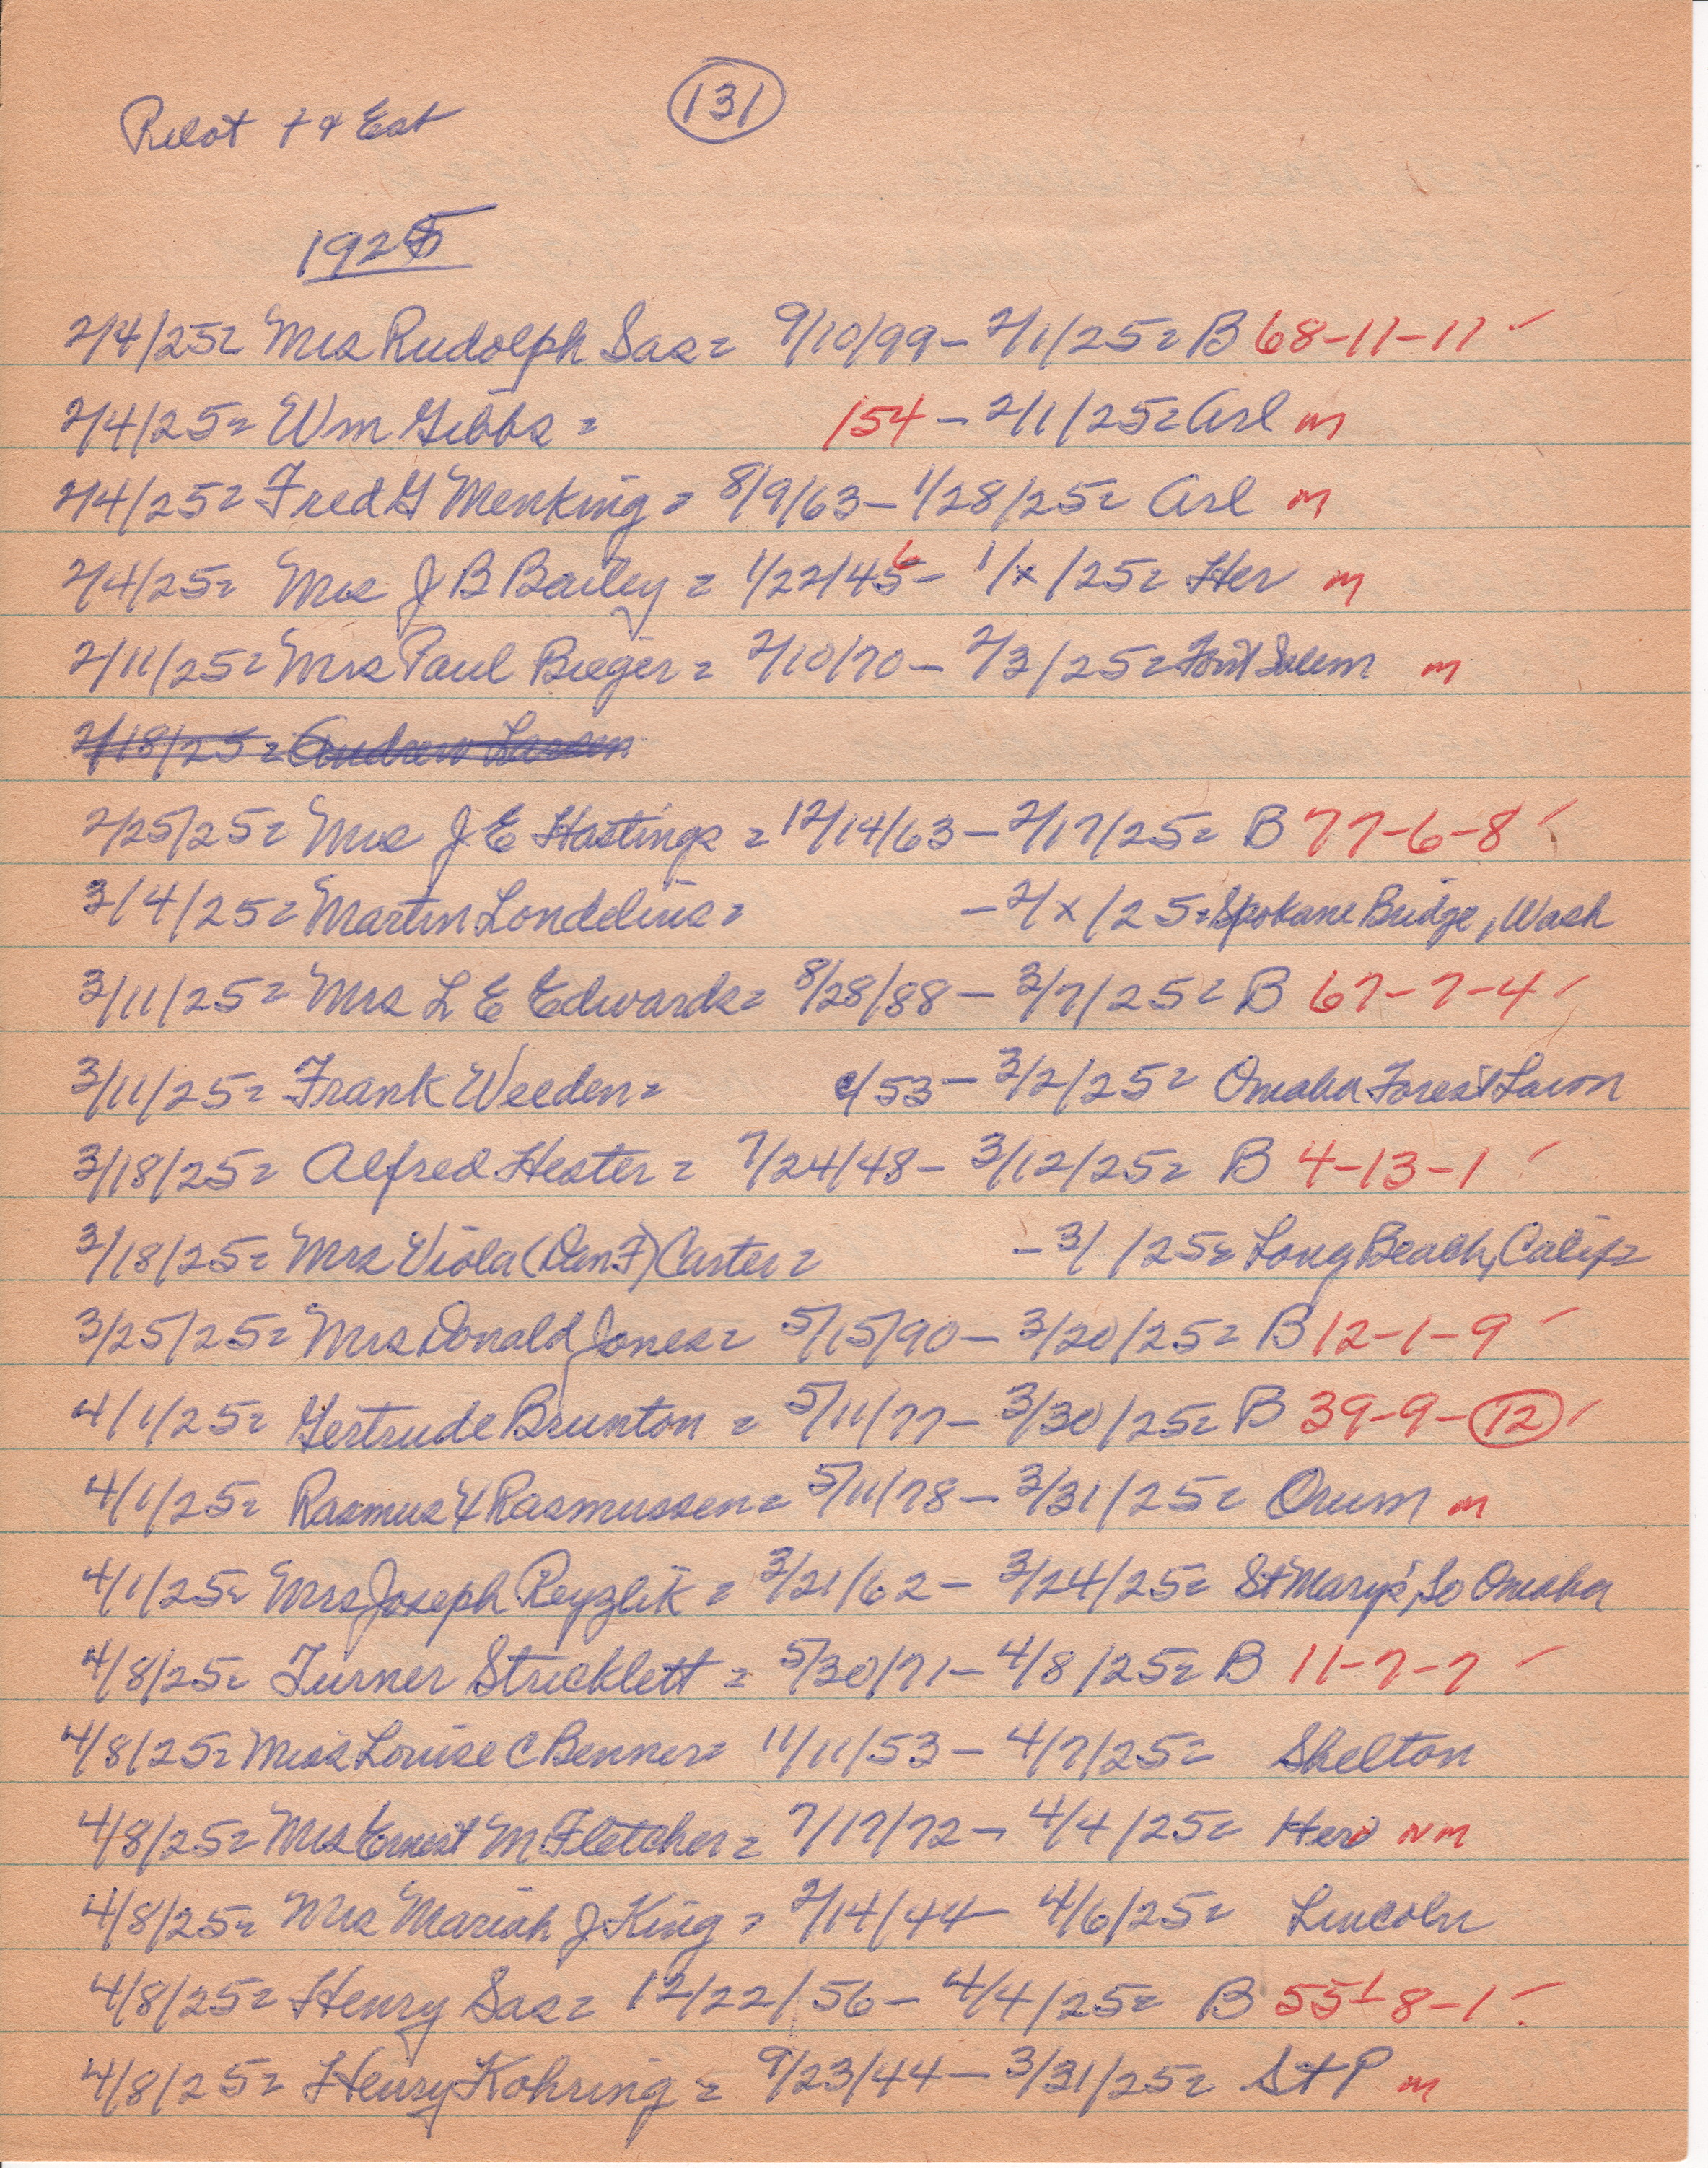 131
Pilot + & Ent
1925
2/4/25= Mrs Rudolph Sas= 9/10/99 - 2/1/25= B 68-11-11 ✓
2/4/25= Wm Gibbs = 154 - 2/1/25= Arl m
2/4/25= Fred G Menking = 8/9/63 - 1/28/25= Arl m
2/4/25= Mrs J B Bailey = 1/22/45 6 - 1/x/25= Her m
2/11/25= Mrs Paul Bieger = 2/10/70 - 2/3/25= Font Salem m
2/18/25= Andrew Larsen
2/25/25= Mrs J E Hastings = 12/14/63 - 2/17/25= B 77-6-8 ✓
3/4/25= Martin Londelius= - 2/x/25= Spokane Bridge, Wash
3/11/25= Mrs L E Edwards= 8/28/88 - 3/7/25= B 67-7-4 ✓
3/11/25= Frank Weeden= c/53 - 3/2/25= Omaha Forest Lawn
3/18/25= Alfred Hester = 7/24/48 - 3/12/25= B 4-13-1 ✓
3/18/25= Mrs Viola (Den F) Carter = - 3/ /25= Long Beach, Calif=
3/25/25= Mrs Donald Jones= 5/15/90 - 3/20/25= B 12-1-9 ✓
4/1/25= Gertrude Brunton = 5/11/77 - 3/30/25= B 39-9-12 ✓
4/1/25= Rasmus Rasmussen= 5/11/78 - 3/31/25= Orum m
4/1/25= Mrs Joseph Reyzlik = 3/21/62 - 3/24/25= St Mary's, So Omaha
4/8/25= Turner Stricklett = 5/30/71 - 4/8/25= B 11-7-7 ✓
4/8/25= Miss Louise C Benner= 11/11/53 - 4/7/25= Shelton
4/8/25= Mrs Ernest M Fletcher = 7/17/72 - 4/4/25= Her nm
4/8/25= Mrs Mariah J King = 2/14/44 - 4/6/25= Lincoln
4/8/25= Henry Sas= 12/22/56 - 4/4/25= B 55-8-1 ✓
4/8/25= Henry Kohring = 9/23/44 - 3/31/25= St P m